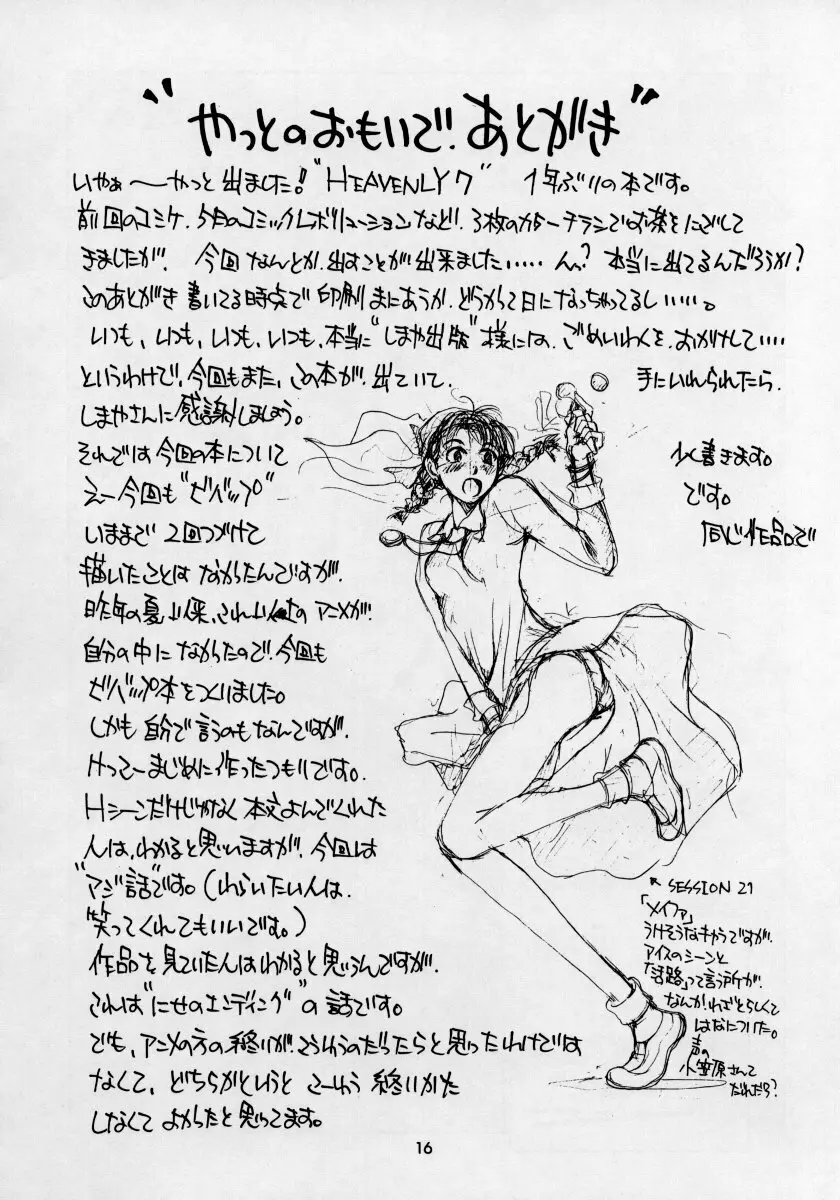 "やっとのおもいで!あとがき"
いやぁ〜やっと出ました!"HEAVENLY 7" 1年ぶりの本です。
前回のコミケ、5月のコミックレボリューションなど、3枚のカラーチラシでお茶をにごして
きましたが、今回なんとか、出すことが出来ました……ん?本当に出てるんだろうか?
このあとがき書いてる時点で印刷まにあうか、どうかって日になっちゃってるし……。
いつも、いつも、いつも、いつも、本当に"しまや出版"様には、ごめいわくを、おかけして…
というわけで、今回もまた、この本が、出ていて、手にいれられたら、
しまやさんに感謝しましょう。
それでは今回の本について
少く書きます。
えー今回も"ビバップ"
です。
いままで2回つづけて
同じ作品で
描いたことはなかったんですが、
昨年の夏以来、これ以上のアニメが、
自分の中になかったので、今回も
ビバップ本をつくりました。
しかも自分で言うのもなんですが、
けっこーまじめに作ったつもりです。
Hシーンだけじゃなく本文よんでくれた
人は、わかると思いますが、今回は
"マジ話"です。(わらいたい人は、
笑ってくれてもいいです。)
作品を見ていた人はわかると思うんですが、
これは"にせのエンディング"の話です。
でも、アニメの方の終りが、こういうのだったらと思ったわけでは
なくて、どちらかというとこーゆう終いかた
しなくてよかったと思ってます。
↖ SESSION 21
「メイファ」
うけそうなキャラですが、
アイスのシーンと
「活路」って言う所が、
なんか、わざとらしくて
はなについた。
声の
小笠原さんて
だれだろ?
16